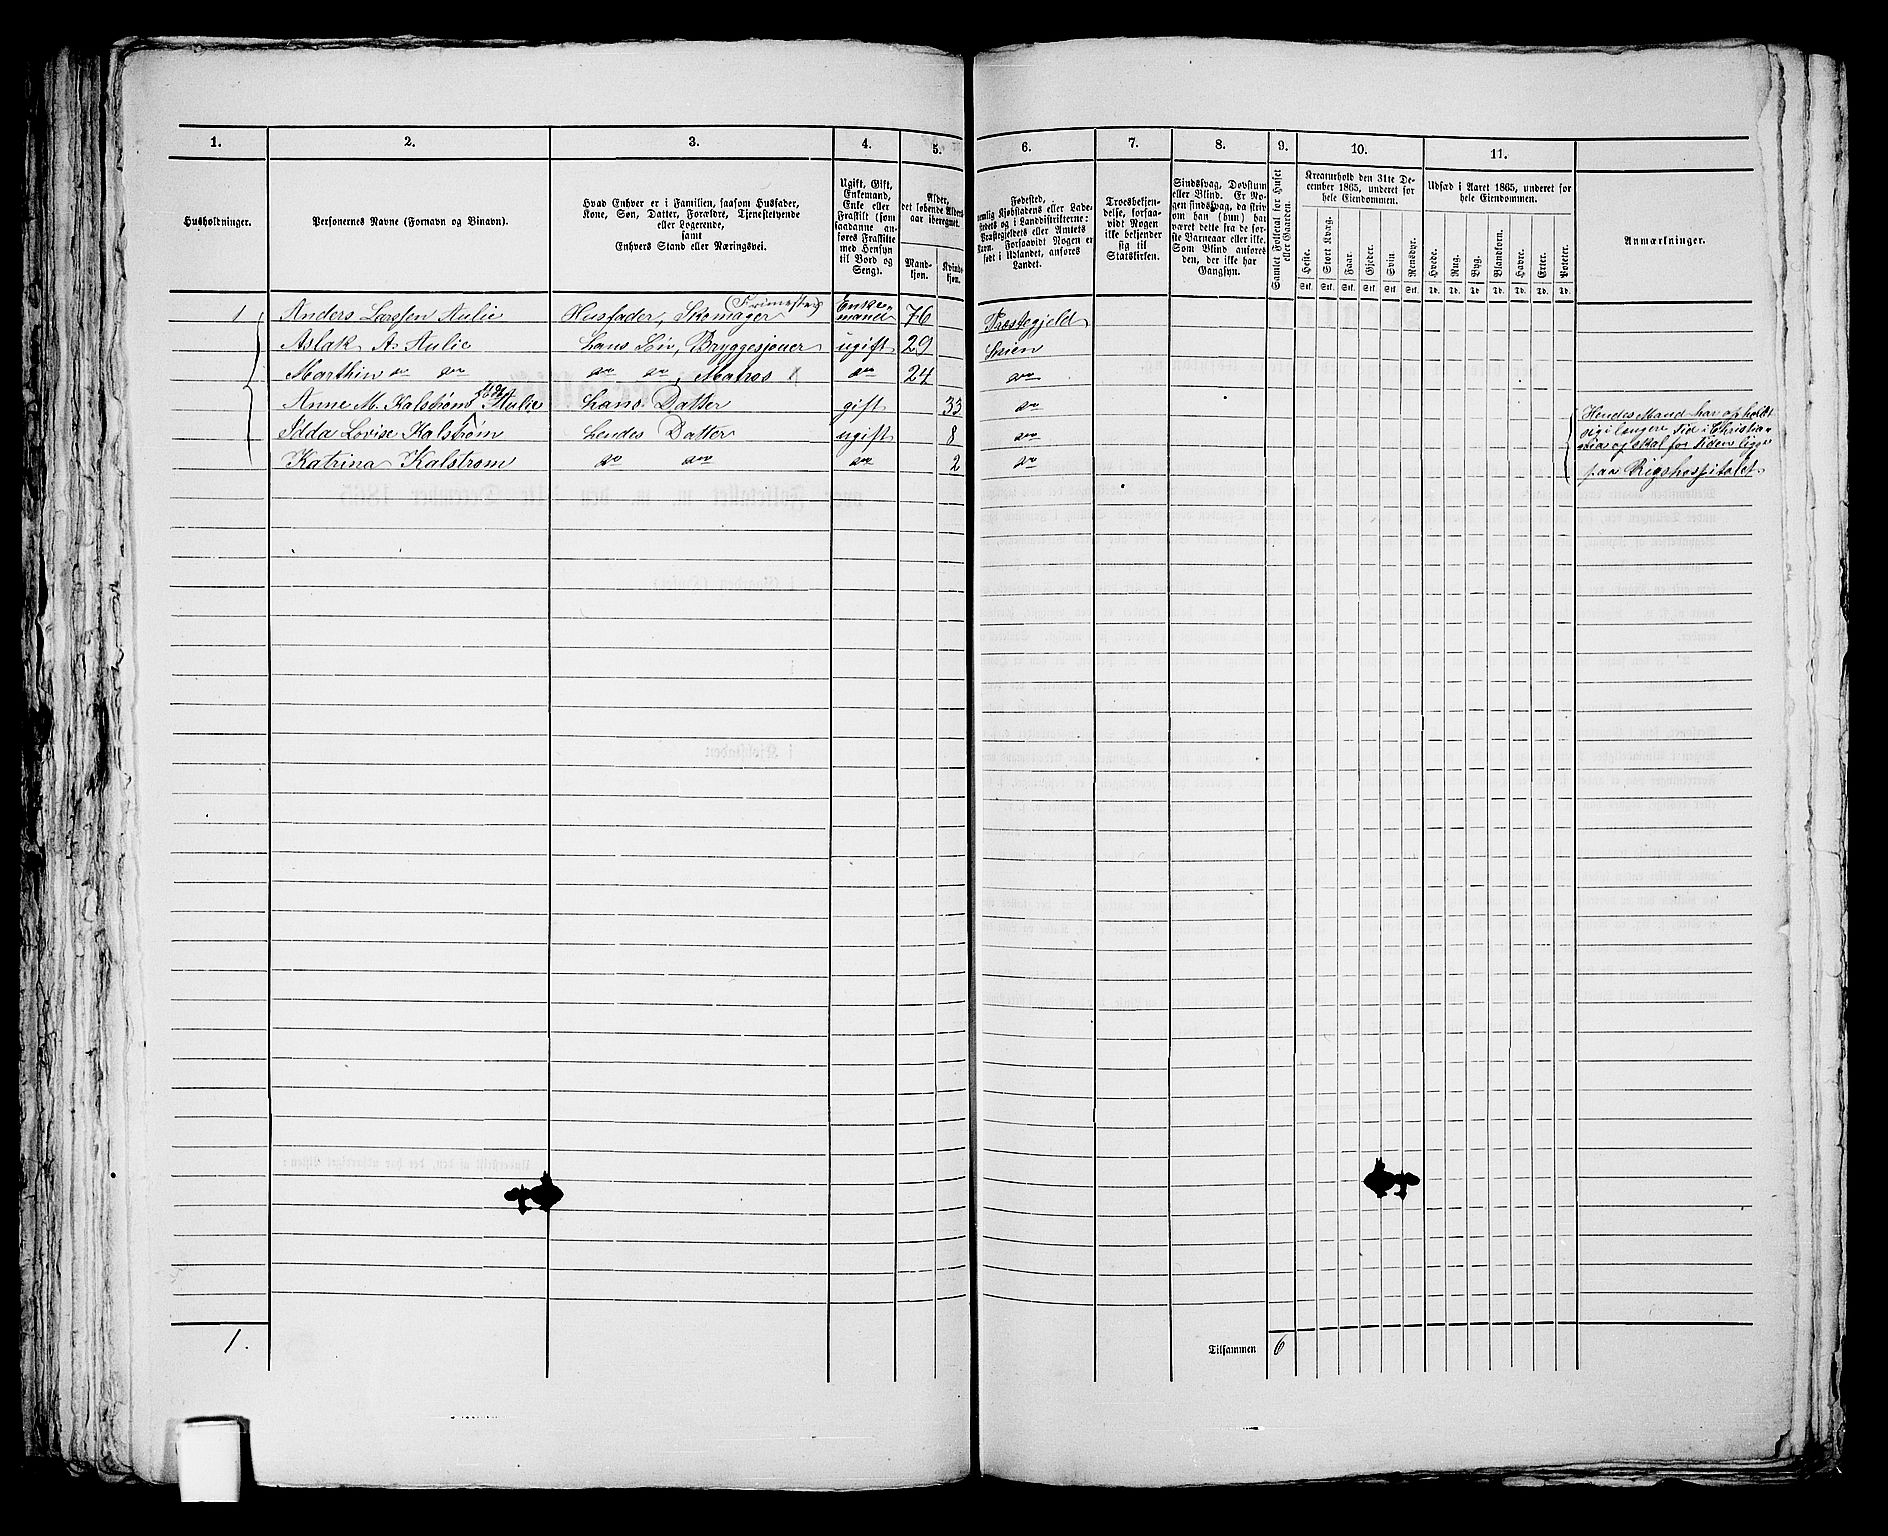 1. 2. 3. 4. 5. 6. 7. 8. 9. 10. 11.
Husholdninger.
Personernes Navne (Fornavn og Binavn).
Hvad Enhver er i Familien, saasom Husfader,
Kone, Søn, Datter, Forældre, Tjenestetyende
eller Logerende,
samt
Enhvers Stand eller Næringsvei.
Ugift, Gift,
Enkemand,
Enke eller
Fraskilt (som
saadanne an-
føres Fraskilte
med Hensyn
til Bord og
Seng).
Alder,
det løbende Alders-
aar iberegnet.
Mand-
kjøn.
Kvinde-
kjøn.
Fødested,
nemlig Kjøbstadens eller Lade-
stedets og i Landdistrikterne:
Præstegjeldets eller Amtets
Navn. Forsaavidt Nogen er
født i Udlandet, anføres
Landet.
Troesbekjen-
delse, forsaa-
vidt Nogen
ikke bekjender
sig til
Statskirken.
Sindssvag, Døvstum
eller Blind. Er No-
gen sindssvag, da skriv
om han (hun) har
været dette fra de før-
ste Barneaar eller ikke.
Som Blind anføres
den, der ikke har
Gangsyn.
Samlet Folketal for Huset
eller Gaarden.
Kreaturhold den 31te De-
cember 1865, underet for
hele Eiendommen.
Heste. Stort Kvæg. Faar. Gjeder. Svin. Rensdyr.
Stk. Stk. Stk. Stk. Stk. Stk.
Udsæd i Aaret 1865, underet for
hele Eiendommen.
Hvede. Rug. Byg. Blandkorn. Havre. Erter. Poteter.
Td. Td. Td. Td. Td. Td. Td.
Anmærkninger.
1 Anders Larssen Aulie Husfader, Skomager Enke-mand 76 Præstegjeld
Aslak A. Aulie hans Søn, Bryggesjouer ugift 29 Skien
Marthin do do do do, Matros do 24 do
Anne M. Kalstrøm fød Aulie hans Datter gift 33 do
Idda Lovise Kalstrøm hendes Datter ugift 8 do
Katrina Kalstrøm do do do 2 do
Hendes Mand har opholdt
sig i længere Tid i Christia-
nia og skal for Tiden ligge
paa Rigshospitalet
1.
Tilsammen 6